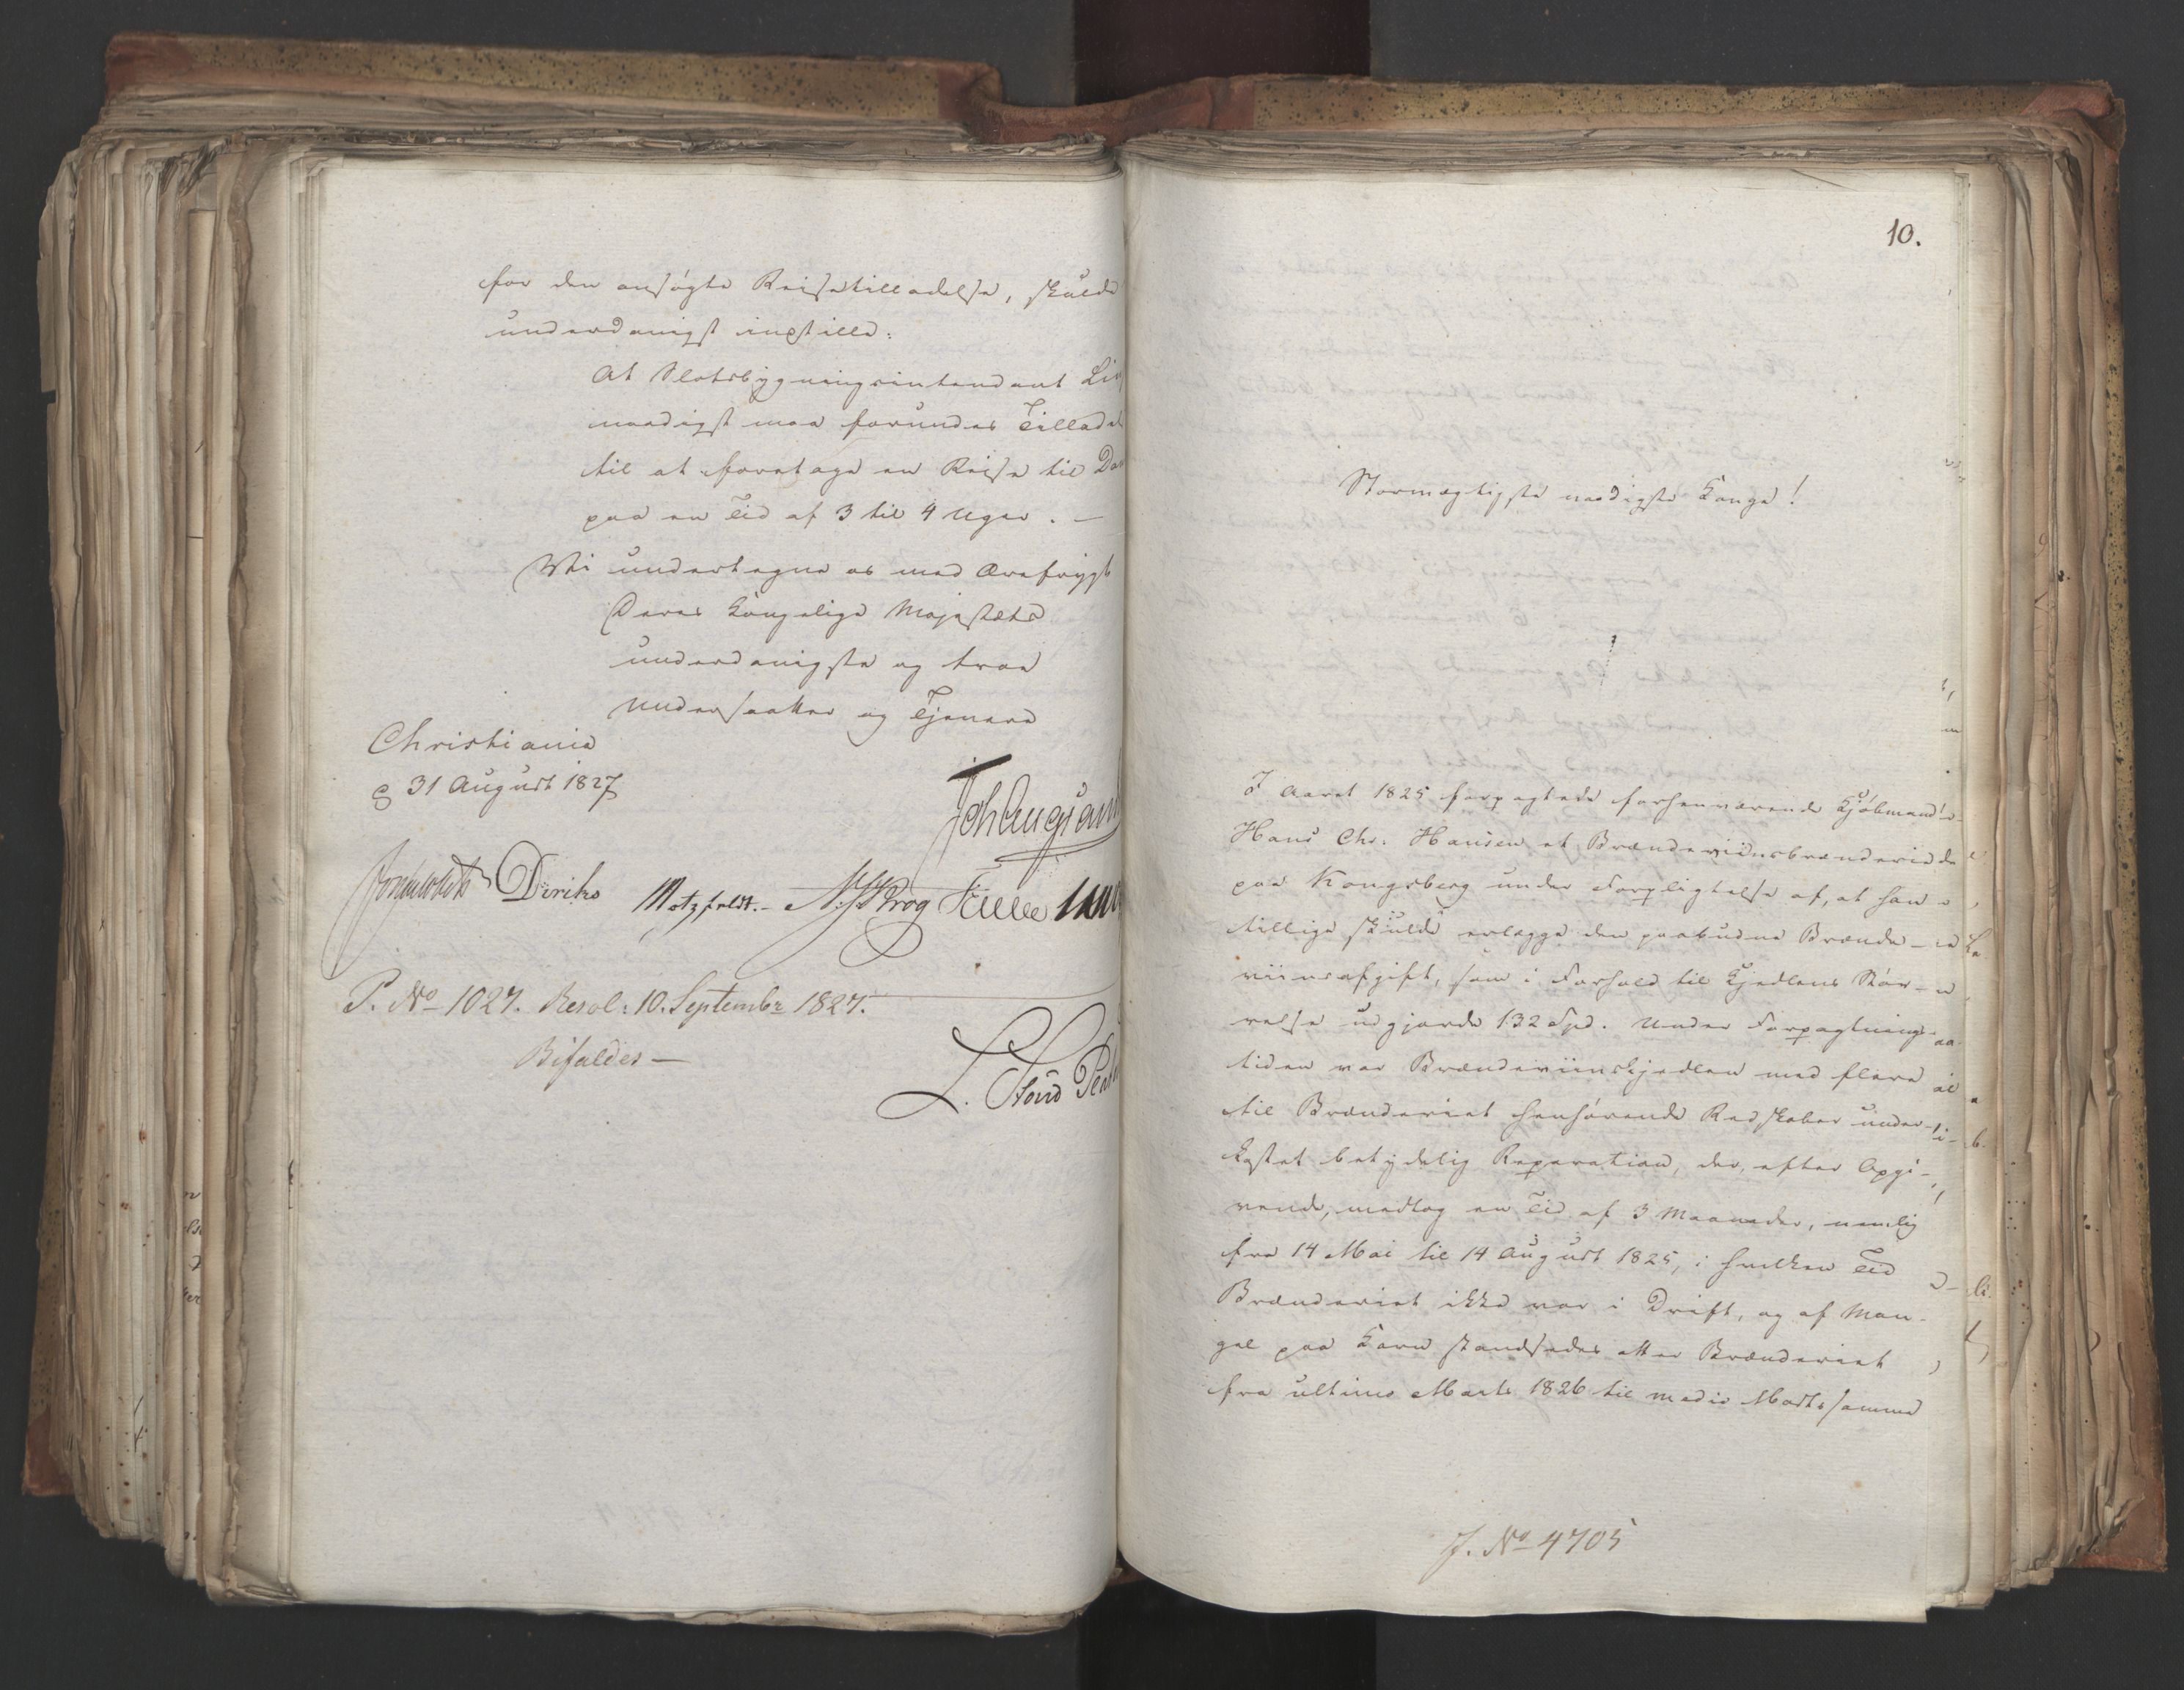 for den ansøgte Reisetilladelse, skulde
underdanigst indstille:
At Slotsbygningsintendant
naadigst maa forundes Tillad
til at foretage en Reise til Da
paa en Tid af 3 til 4 Uger. —
Vi undertegne os med Ærefrygt
Deres Kongelige Majestæts
underdanigste og troe
Undersaatter og Tjenere
Christiania
d 31 August 1827
Diriks Motzfeldt. — Krog
P. No 1027. Resol: 10. Septembr 1827.
Bifaldes —
L.
10.
Stormægtigste naadigste Konge!
I Aaret 1825 forpagtede forhenværende Kjøbmand
Hans Chr. Hansen et Brændeviinsbrænderie
paa Kongsberg under Forpligtelse af, at han
tillige skulde erlægge den paabudne Brænde-
viinsafgift, som i Forhold til Kjedlens Stør-
relse udgjorde 132 Spd. Under Forpagtnings-
tiden var Brændeviinskjedlen med flere
til Brænderiet henhørende Redskaber under-
kastet betydelig Reparation, der, efter Opgi-
vende, medtog en Tid af 3 Maaneder, nemlig
fra 14 Mai til 14 August 1825, i hvilken Tid
Brænderiet ikke var i Drift, og af Man-
gel paa Korn standsedes atter Brænderiet
fra ultimo Marts 1826 til medio samme
J. No 4705